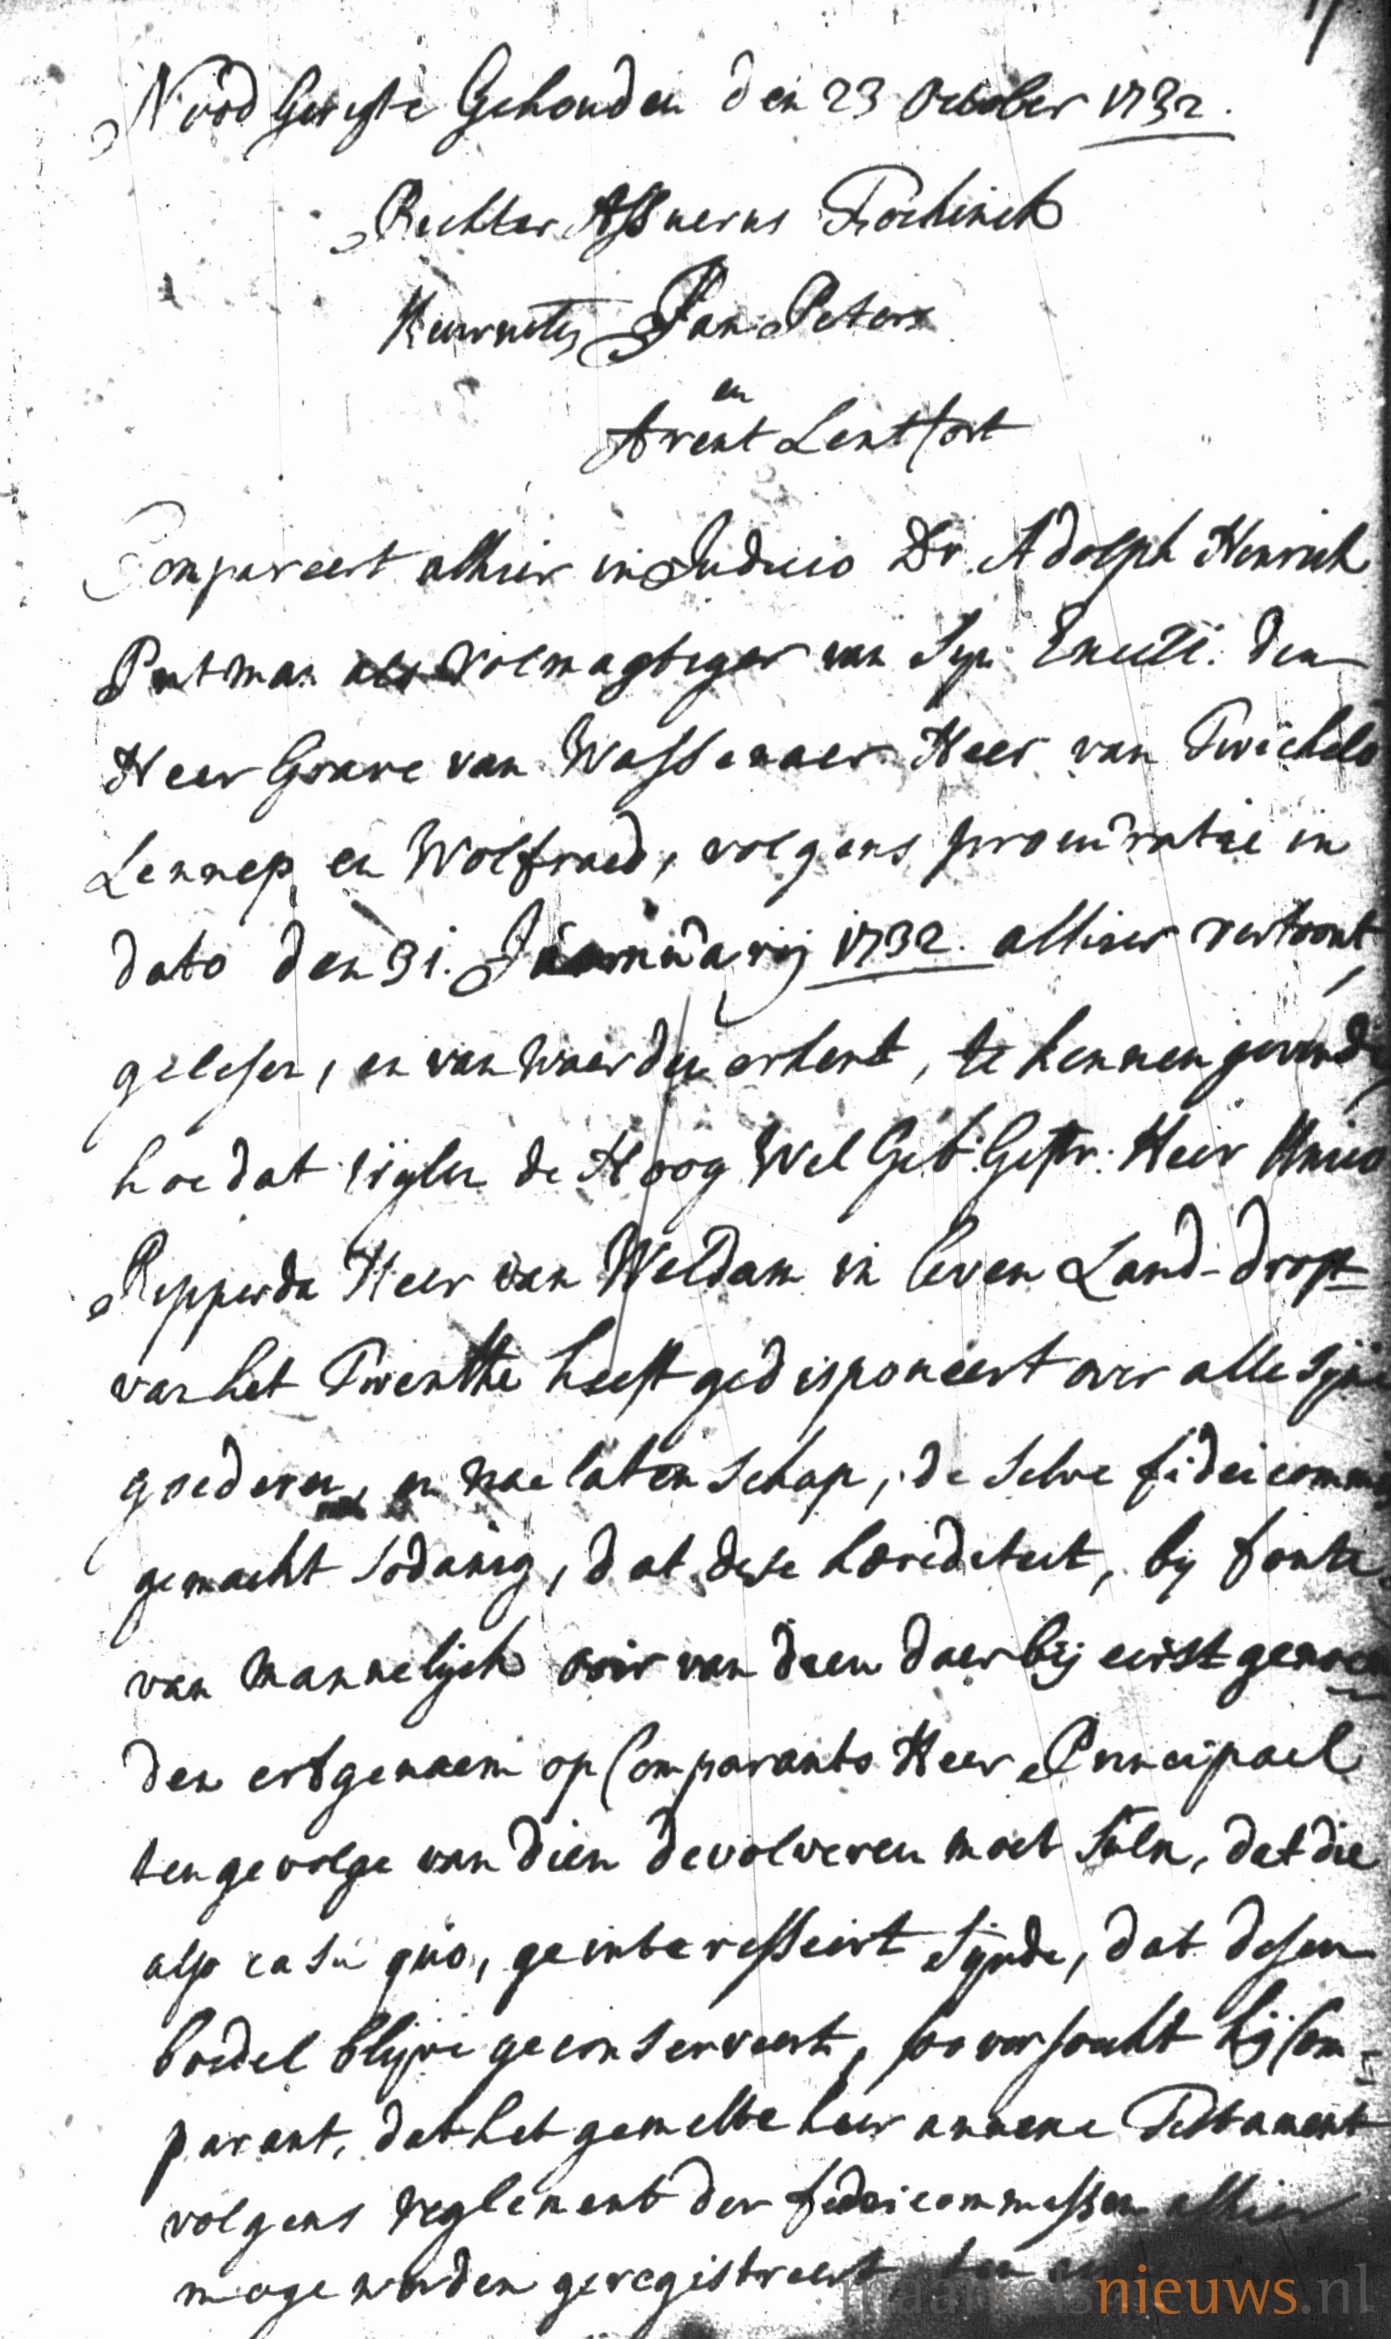 Nood Gerigte Gehouden den 23 October 1732.
Richter Assuerus Fockinck
Keurnoten Jan Peters
en
Arent Lentfort
Compareert alhier in Judicio Dr. Adolph Henrick
Putman als Volmagtiger van Syn Excell: den
Heer Grave van Wassenaer Heer van Twickelo
Lennep en Wolfraed, volgens procuratie in
dato den 31. Januarij 1732. alhier vertoont,
gelesen, en van waerden erkent, te kennen gevende
hoe dat wylen de Hoog Wel Geb: Gestr: Heer Unico
Ripperda Heer van Weldam in leven Land-Drost
van het Twenthe heeft gedisponeert over alle syne
goederen, en naelatenschap, de selve fideicommis
gemaeckt sodanig, dat dese haerediteit, by faute
van mannelijck oir van dien daer bij eerst genoem
den erfgenaem op Comparants Heer Principael
ten gevolge van dien devolveren moet suln, dat die
also casu quo, geinteresseert synde, dat desen
boedel blyve geconserveert, so versoeckt hij Com=
parant, dat het gemelte hier annexe Testament
volgens reglement der fideicommissen alhier
moge worden geregistreert ten
maarkelsnieuws.nl